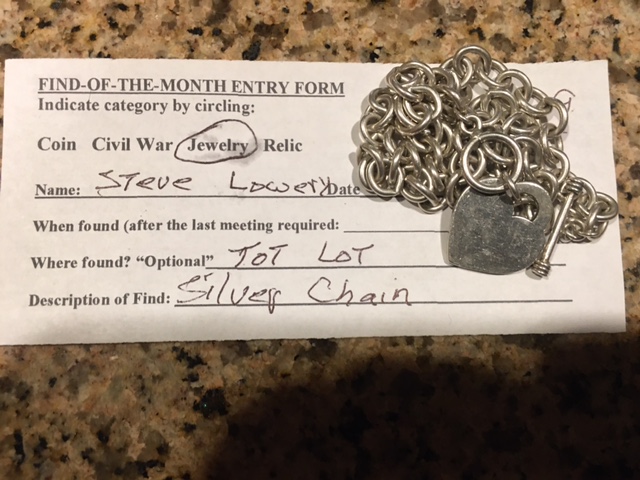 FIND-OF-THE-MONTH ENTRY FORM
Indicate category by circling:
Coin Civil War Jewelry Relic
Name: Steve Lowery Date
When found (after the last meeting required:
Where found? “Optional” TOT LOT
Description of Find: Silver Chain